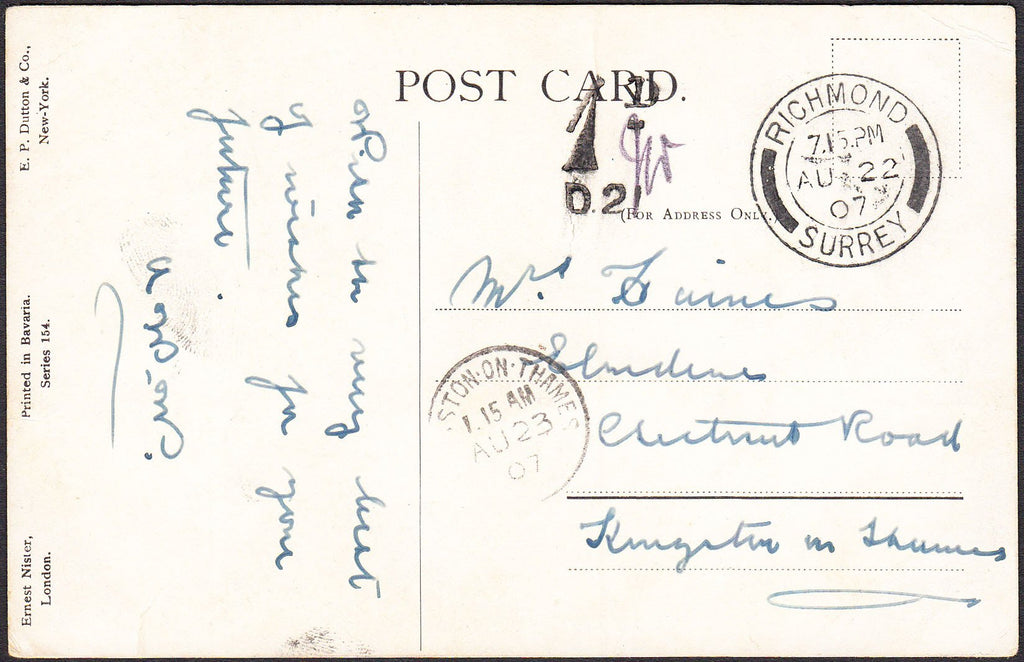 POST CARD.
(FOR ADDRESS ONLY.)
1D
D.21
RICHMOND
7.15.PM
AU 22
07
SURREY
Mrs Haines
Elmdene
Chestnut Road
Kingston on Thames
STON-ON-THAMES
1.15 AM
AU 23
07
With the very best
of wishes for your
future.
E. P. Dutton & Co.,
New-York.
Printed in Bavaria.
Series 154.
Ernest Nister,
London.